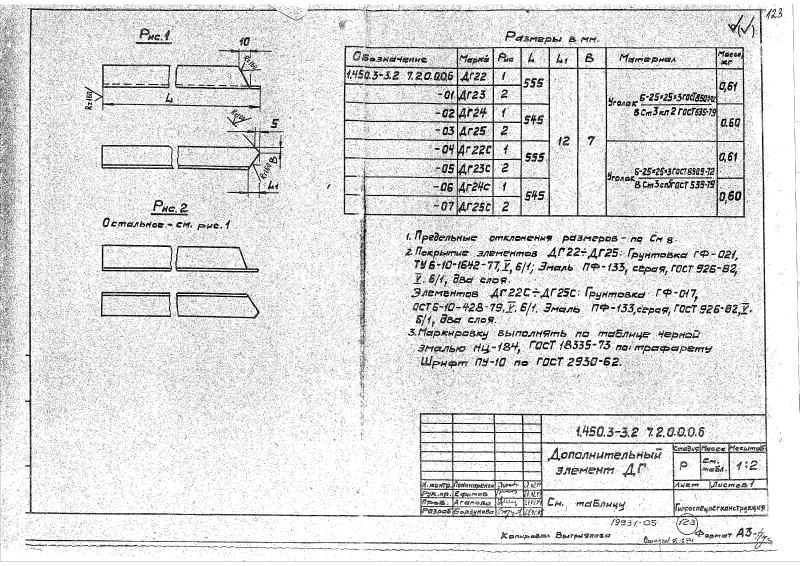 123
Рис.1
10
Rz160
Rz160
L
Rz160
5
B
Rz160
L1
Рис. 2
Остальное - см. рис.1
Размеры в мм.
Обозначение Марка Рис L L1 B Материал Масса, кг
1.450.3-3.2 7.2.0.0.0.6 ДГ22 1 555 12 7 Уголок Б-25×25×3 ГОСТ 8509-72 0,61
-01 ДГ23 2 В Ст3 кп 2 ГОСТ 535-79
-02 ДГ24 1 545 0.60
-03 ДГ25 2
-04 ДГ22С 1 555 Уголок Б-25×25×3 ГОСТ 8509-72 0,61
-05 ДГ23С 2 В Ст3 сп5 ГОСТ 535-79
-06 ДГ24С 1 545 0,60
-07 ДГ25С 2
1. Предельные отклонения размеров - по См 8
2. Покрытие элементов ДГ22÷ДГ25: Грунтовка ГФ-021,
ТУ 6-10-1642-77, V, 6/1; Эмаль ПФ-133, серая, ГОСТ 926-82,
V. 6/1, два слоя.
Элементов ДГ22С÷ДГ25С: Грунтовка ГФ-017,
ОСТ 6-10-428-79, V. 6/1. Эмаль ПФ-133, серая, ГОСТ 926-82, V.
6/1, два слоя.
3. Маркировку выполнять по таблице черной
эмалью НЦ-184, ГОСТ 18335-73 по трафарету
Шрифт ПУ-10 по ГОСТ 2930-62.
1.450.3-3.2 7.2.0.0.0.6
Дополнительный
элемент ДГ
Стадия Масса Масштаб
Р См. табл. 1:2
Лист Листов 1
Н.контр. Пономаренко
Рук.гр. Ефимов
Пров. Агапова
Разраб Борзунова
См. таблицу
Гипроспецлегконструкция
19931-05 123
Копировал Формат А3